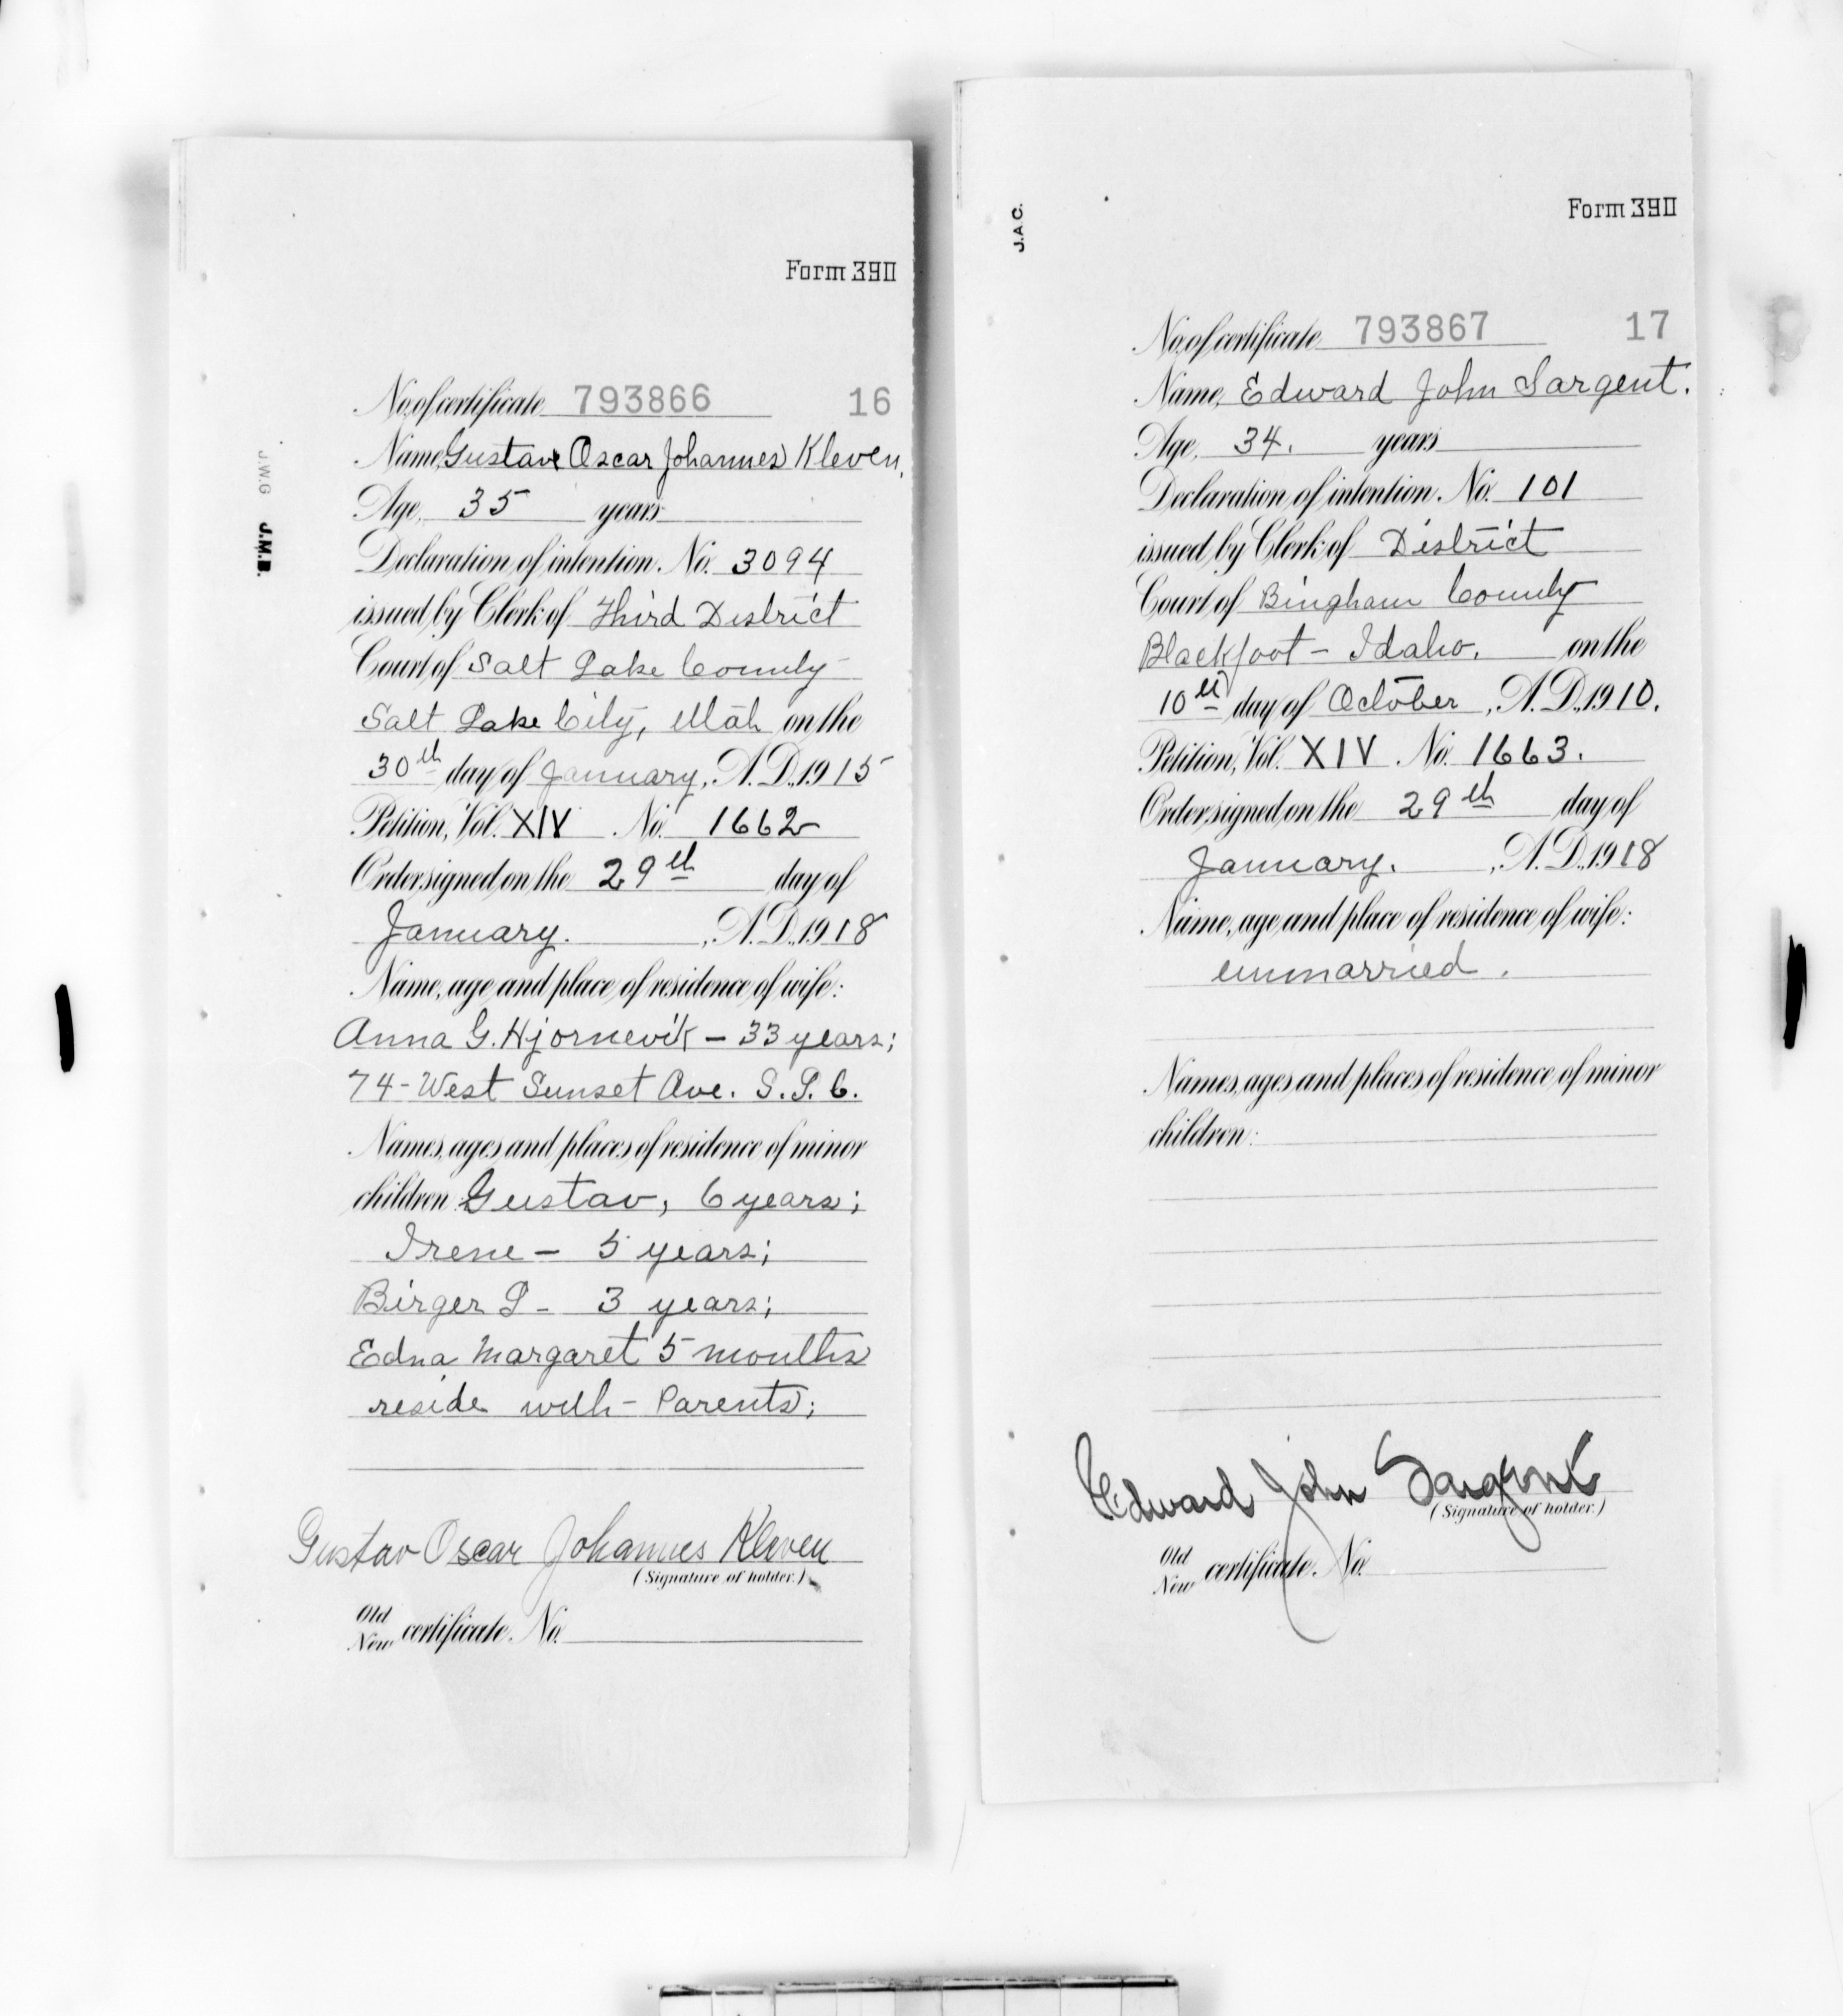 Form 390
No. of certificate 793866 16
Name, Gustave Oscar Johannes Kleven,
Age, 35 years
Declaration of intention. No. 3094
issued by Clerk of Third District
Court of Salt Lake County
Salt Lake City, Utah on the
30th day of January, A.D. 1915
Petition, Vol. XIV No. 1662
Order signed on the 29th day of
January. , A.D. 1918
Name, age and place of residence of wife:
Anna G. Hjornevik - 33 years;
74 - West Sunset Ave. S.L.C.
Names, ages and places of residence of minor
children: Gustav, 6 years;
Irene - 5 years;
Birger L - 3 years;
Edna Margaret 5 months
reside with - Parents;
Gustav Oscar Johannes Kleven
(Signature of holder.)
Old
New certificate. No.
J.W.G J.M.B.
J.A.C.
Form 390
No. of certificate 793867 17
Name, Edward John Sargent.
Age, 34. years
Declaration of intention. No. 101
issued by Clerk of District
Court of Bingham County
Blackfoot - Idaho. on the
10th day of October , A.D. 1910.
Petition, Vol. XIV . No. 1663.
Order signed on the 29th day of
January. , A.D. 1918
Name, age and place of residence of wife:
unmarried.
Names, ages and places of residence of minor
children:
Edward John Sargent
(Signature of holder.)
Old
New certificate. No.